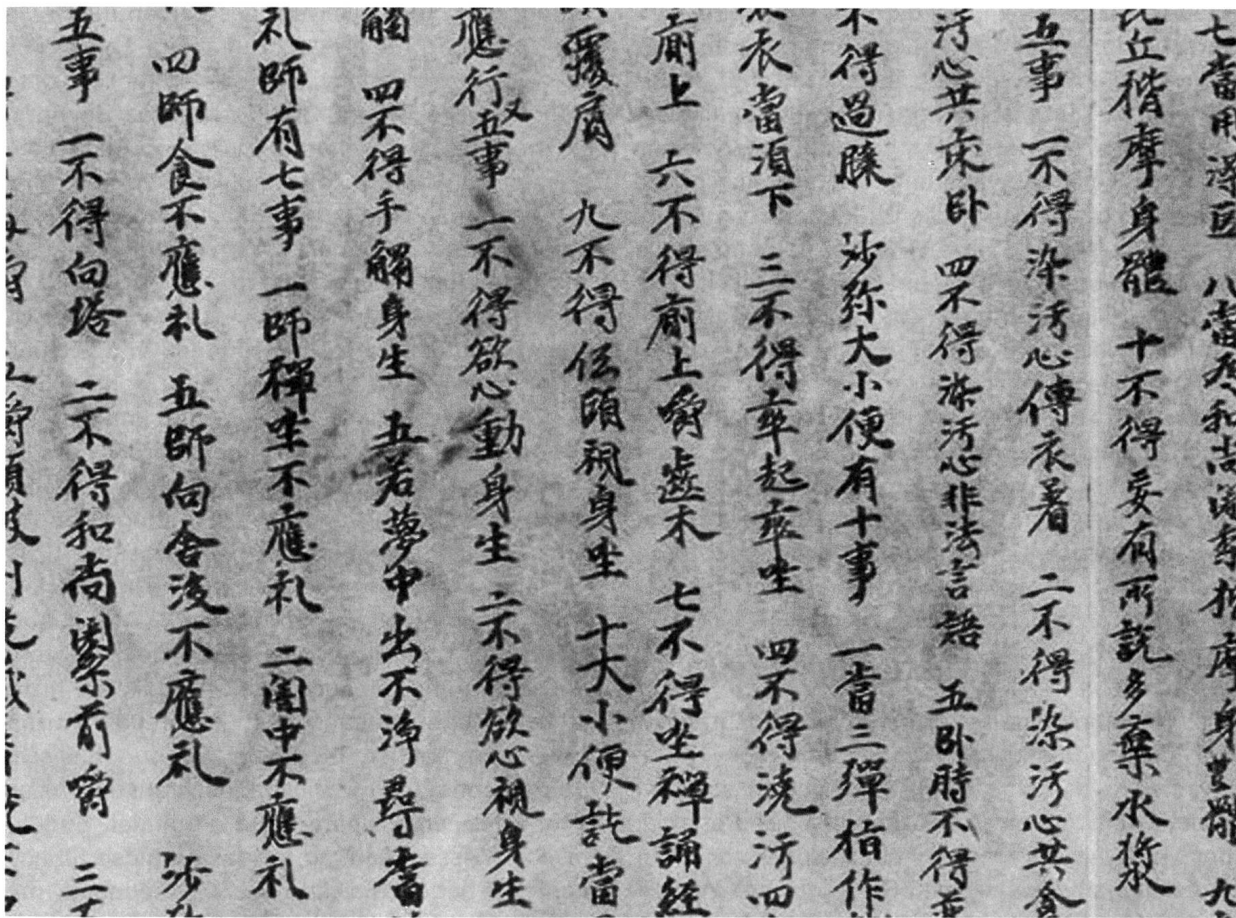 七當用澡豆 八當為和尚阇梨揩摩身體 九
比丘揩摩身體 十不得妄有所説多棄水漿
五事 一不得染汚心傳衣著 二不得染汚心共食
汚心共床卧 四不得染汚心非法言語 五卧時不得
不得過膝 沙弥大小便有十事 一當三彈指作
衣當須下 三不得卒起卒坐 四不得澆汚四
廁上 六不得廁上嚼齒木 七不得坐禪誦經
覆肩 九不得低頭視身坐 十大小便訖當
應行五事 又 一不得欲心動身生 二不得欲心視身生
觸 四不得手觸身生 五若夢中出不淨尋當
礼師有七事 一師禪坐不應礼 二闇中不應礼
四師食不應礼 五師向舍後不應礼 沙弥
五事 一不得向塔 二不得和尚阇梨前嚼 三不